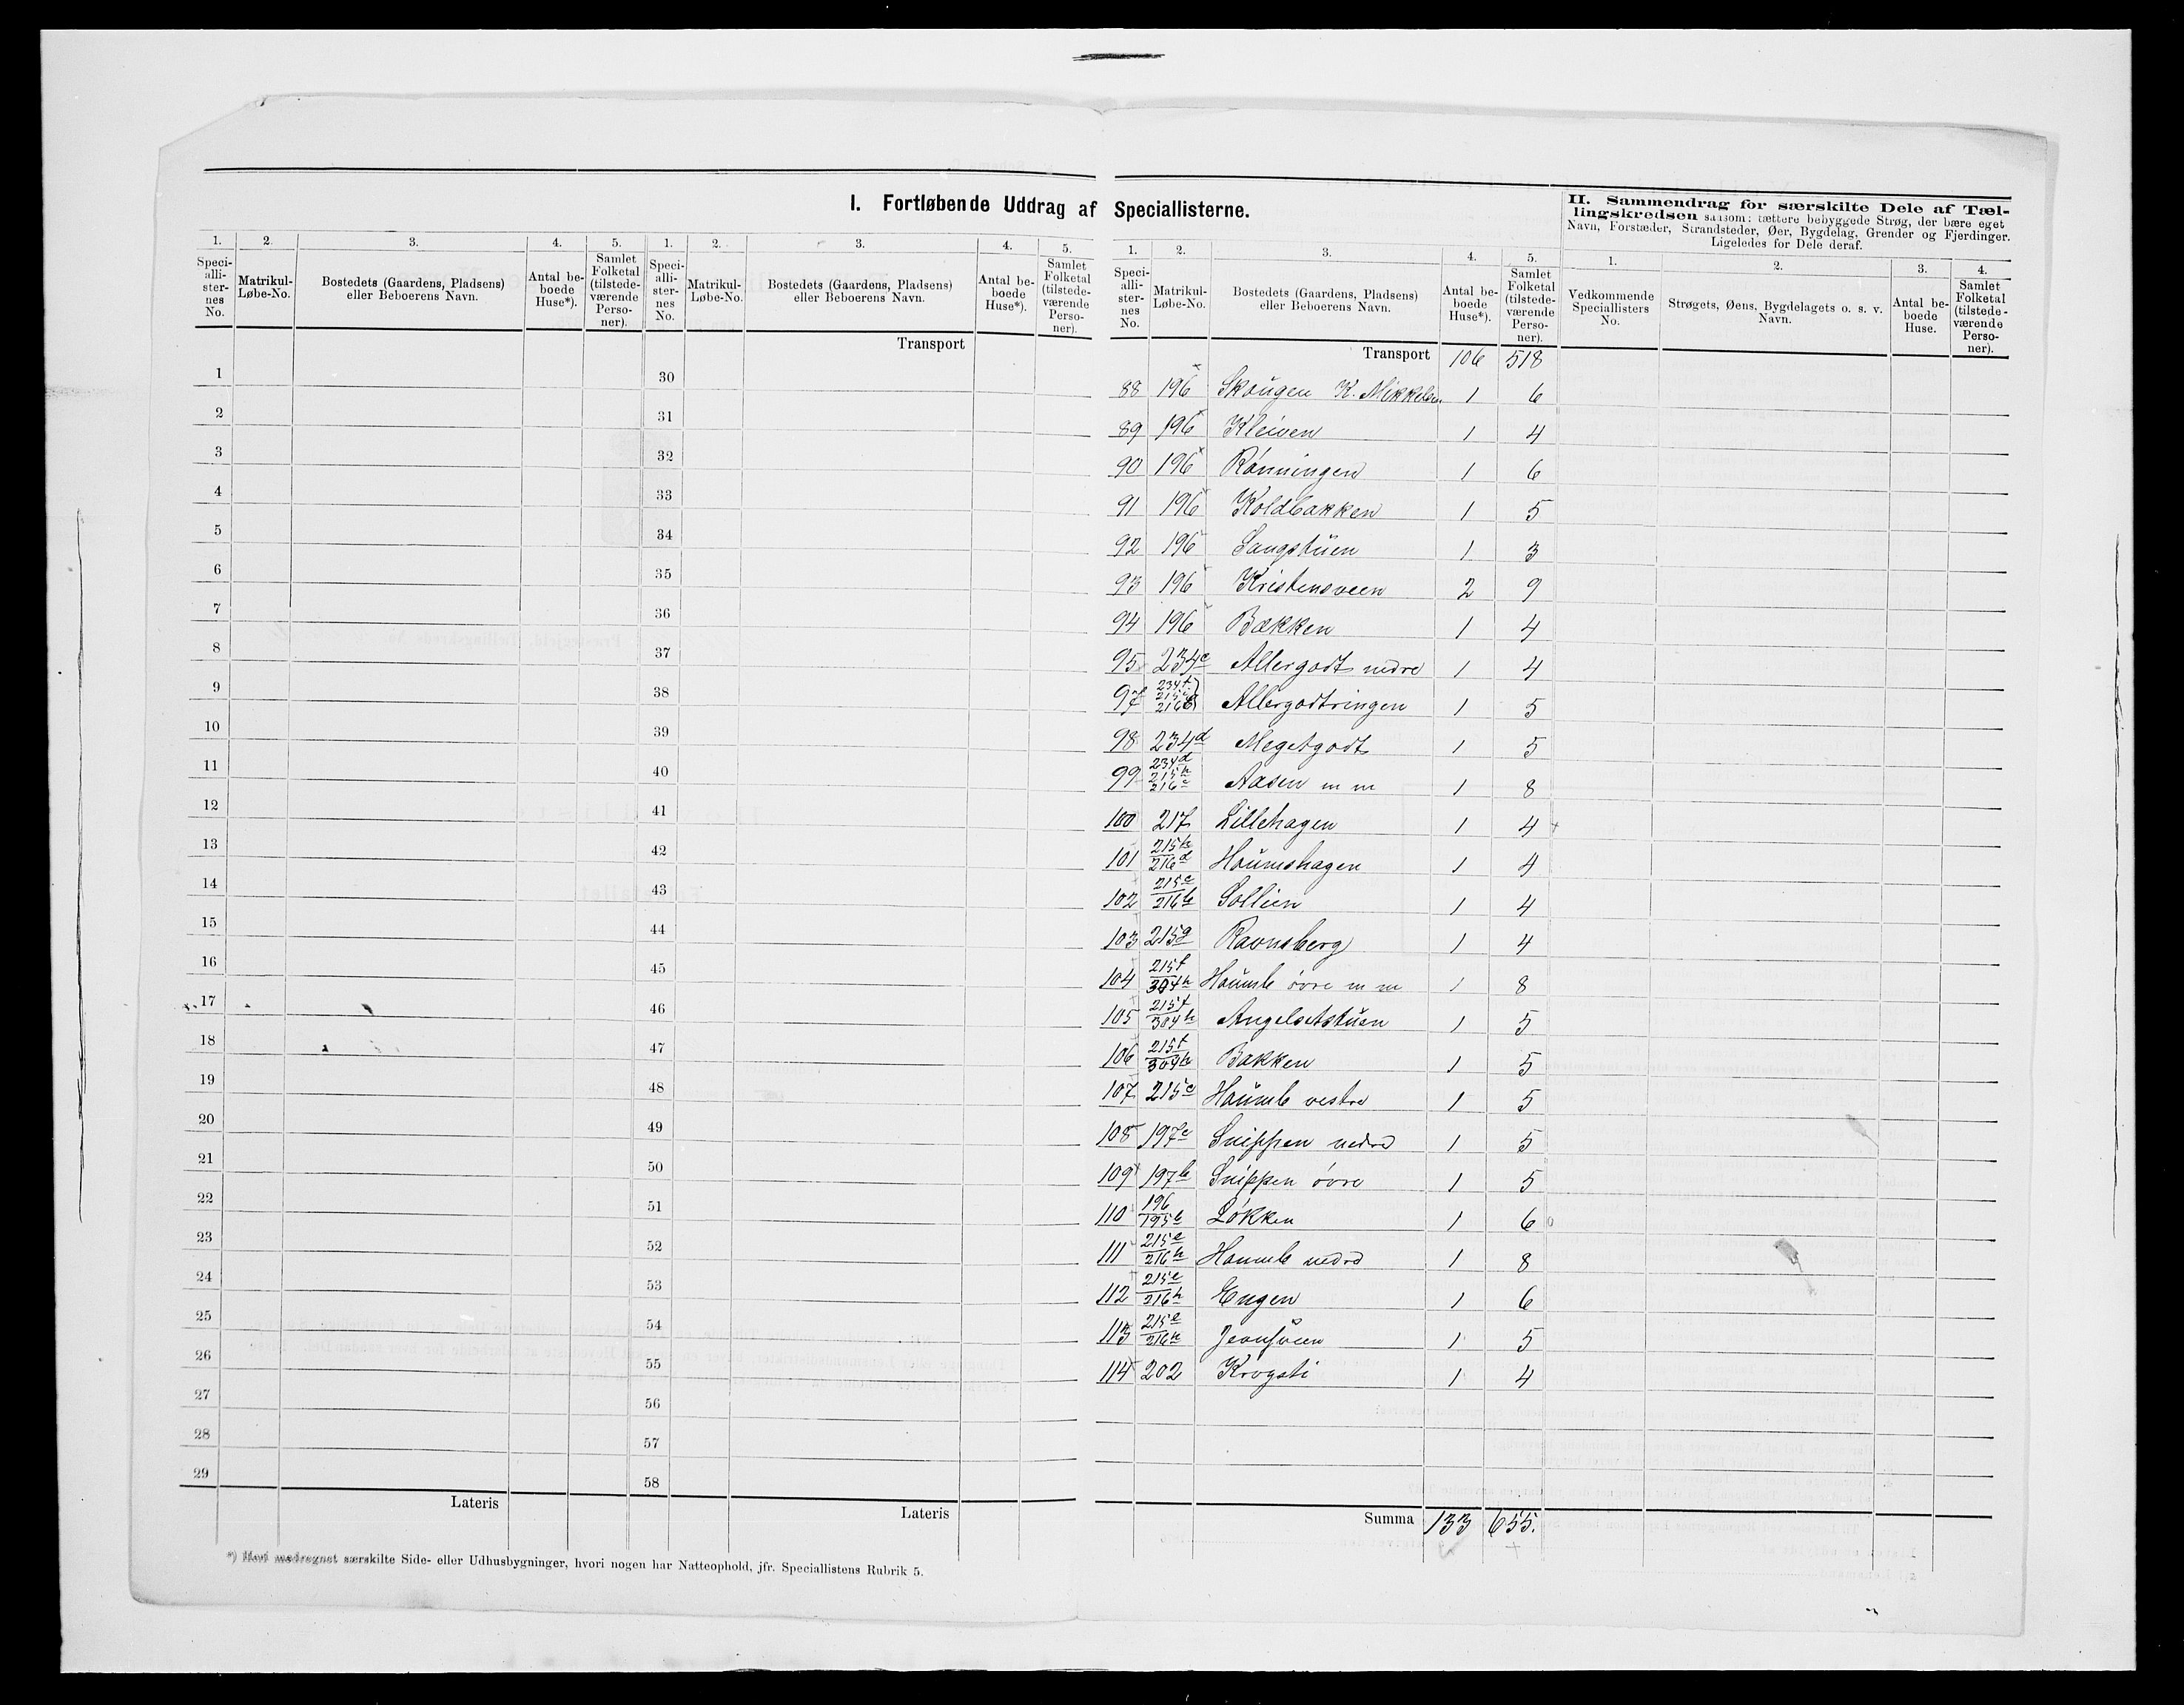 I. Fortløbende Uddrag af Speciallisterne.
II. Sammendrag for særskilte Dele af Tællingskredsen saasom: tættere bebyggede Strøg, der bære eget
Navn, Forstæder, Strandsteder, Øer, Bygdelag, Grender og Fjerdinger.
Ligeledes for Dele deraf.
1. 2. 3. 4. 5. 1. 2. 3. 4. 5. 1. 2. 3. 4. 5. 1. 2. 3. 4.
Speciallisternes No.
Matrikul-Løbe-No.
Bostedets (Gaardens, Pladsens) eller Beboerens Navn.
Antal beboede Huse*).
Samlet Folketal (tilstedeværende Personer).
Speciallisternes No.
Matrikul-Løbe-No.
Bostedets (Gaardens, Pladsens) eller Beboerens Navn.
Antal beboede Huse*).
Samlet Folketal (tilstedeværende Personer).
Speciallisternes No.
Matrikul-Løbe-No.
Bostedets (Gaardens, Pladsens) eller Beboerens Navn.
Antal beboede Huse*).
Samlet Folketal (tilstedeværende Personer).
Vedkommende Speciallisters No.
Strøgets, Øens, Bygdelagets o. s. v. Navn.
Antal beboede Huse.
Samlet Folketal (tilstedeværende Personer).
Transport
1 30
2 31
3 32
4 33
5 34
6 35
7 36
8 37
9 38
10 39
11 40
12 41
13 42
14 43
15 44
16 45
17 46
18 47
19 48
20 49
21 50
22 51
23 52
24 53
25 54
26 55
27 56
28 57
29 58
Lateris
Lateris
*) Heri medregnet særskilte Side- eller Udhusbygninger, hvori nogen har Natteophold, jfr. Speciallistens Rubrik 5.
Transport 106 518
88 196 Skougen K. Mikkelsen 1 6
89 196 Kleiven 1 4
90 196 Rønningen 1 6
91 196 Koldbakken 1 5
92 196 Langstuen 1 3
93 196 Kristensveen 2 9
94 196 Bækken 1 4
95 234c Allergodt nedre 1 4
97 234f 215i 216 Allergodtringen 1 5
98 234d Megetgodt 1 5
99 234d 215h 216c Aasen m m 1 8
100 217 Lillehagen 1 4
101 215k 216d Houmshagen 1 4
102 215c 216b Sollien 1 4
103 215g Ravnsberg 1 4
104 215f 304h Houmb øvre m m 1 8
105 215f 304h Angelsetstuen 1 5
106 215f 304h Bakken 1 5
107 215c Houmb vestre 1 5
108 197c Snippen nedre 1 5
109 197b Snippen øvre 1 5
110 196 195b Løkken 1 6
111 215e 216h Houmb nedre 1 8
112 215e 216h Engen 1 6
113 215e 216h 1 5
114 202 Krogsti 1 4
Summa 133 655.